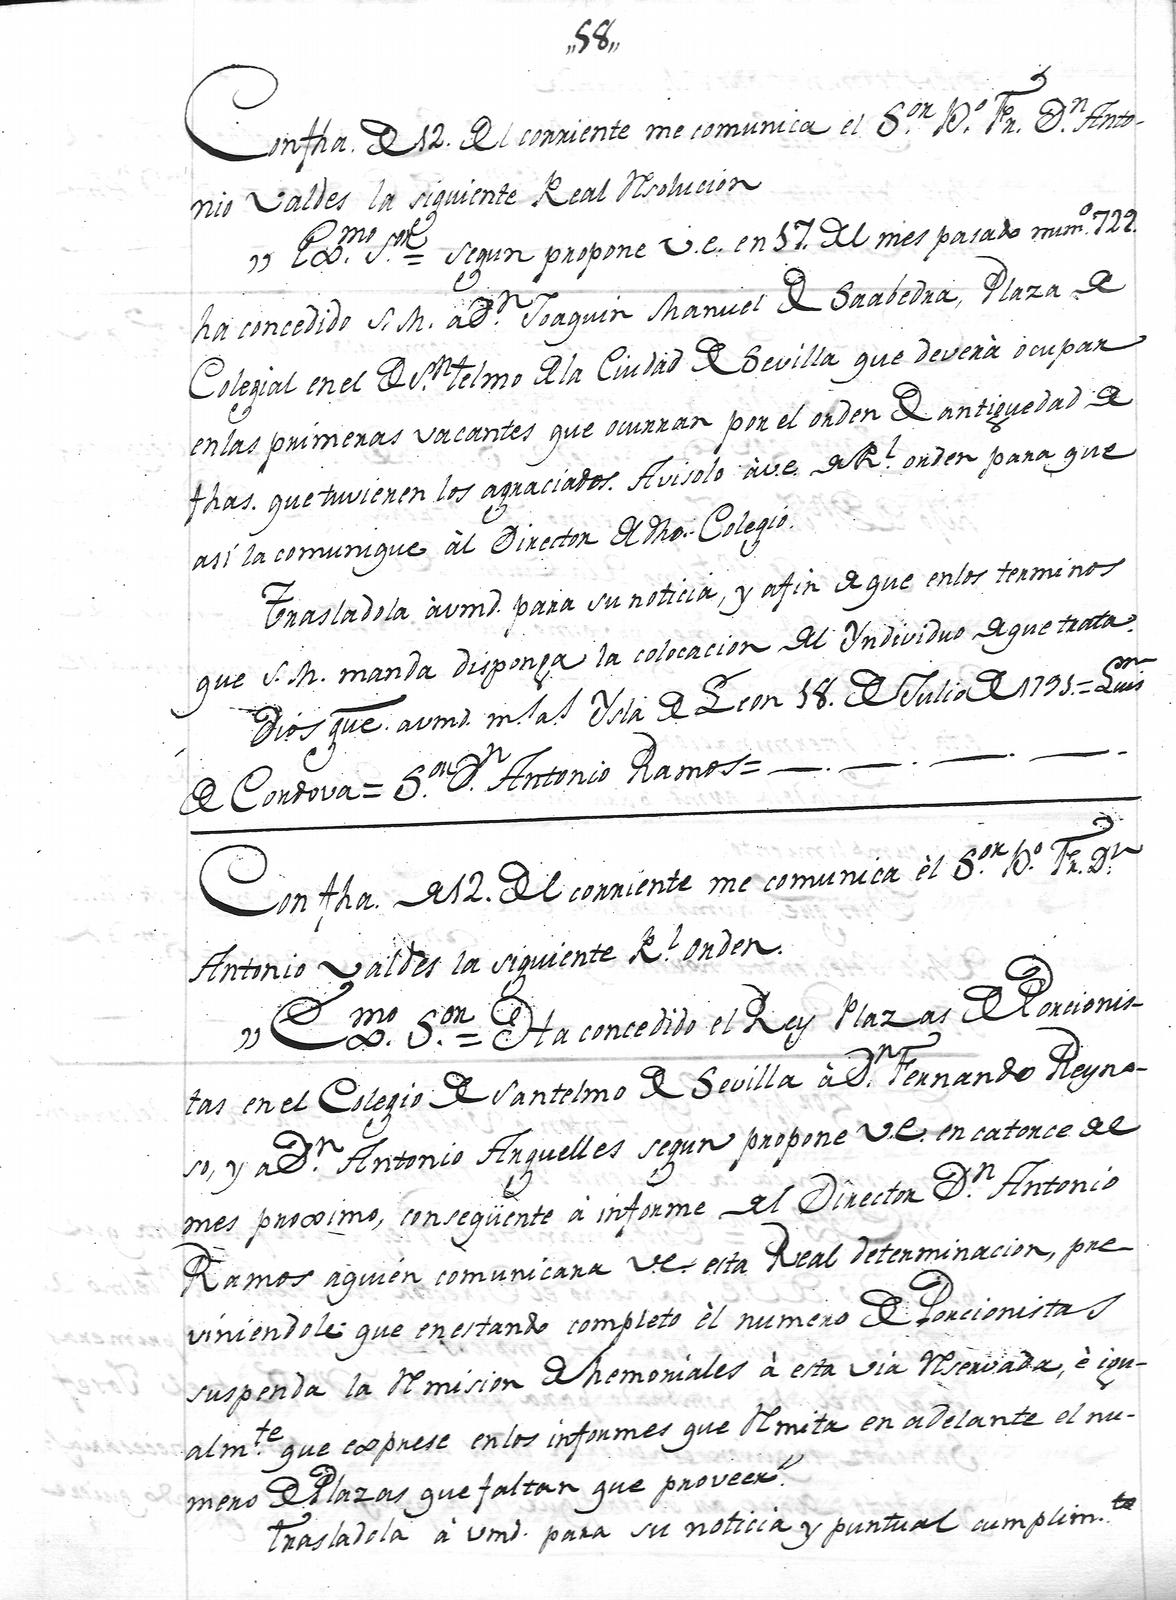 „58„
Con fha. de 12. del corriente me comunica el S.or B.o Fr. D.n Anto-
nio Valdes la siguiente Real Resolucion
„ Exmo. S.or = segun propone V.E. en 17. del mes pasado num.o 722.
ha concedido S.M. a D.n Joaquin Manuel de Saabedra, Plaza de
Colegial en el de S.n telmo dela Ciudad de Sevilla que deverà ocupar
enlas primeras vacantes que ocurran por el orden de antiguedad de
fhas. que tuvieren los agraciados. Avisolo àv.e. de R.l orden para que
así la comunique àl Director de dho. Colegio.
Trasladola àvmd. para su noticia, y afin de que enlos terminos
que S.M. manda disponga la colocacion del Yndividuo de que trata.
Dios gue. avmd. m.s a.s Ysla de Leon 18. de Julio de 1791. = Luis
de Cordova = S.or D.n Antonio Ramos =
Con fha. de 12. del corriente me comunica èl S.or B.o Fr. D.n
Antonio Valdès la siguiente R.l orden.
„ Exmo. S.or = Ha concedido el Rey Plazas de Porcionis-
tas en el Colegio de Santelmo de Sevilla à D.n Fernando Reyno-
so, y a D.n Antonio Arguelles segun propone V.E. en catorce de
mes proximo, conseqüente à informe del Director D.n Antonio
Ramos aquien comunicara V.E. esta Real determinacion, pre
viniendole que enestando completo èl numero de Porcionistas
suspenda la Remision de Memoriales à esta via Reservada, è igu-
alm.te que exprese enlos informes que Remita en adelante el nu-
mero de Plazas que faltan que proveer.„
Trasladola à vmd. para su noticia y puntual cumplim.to